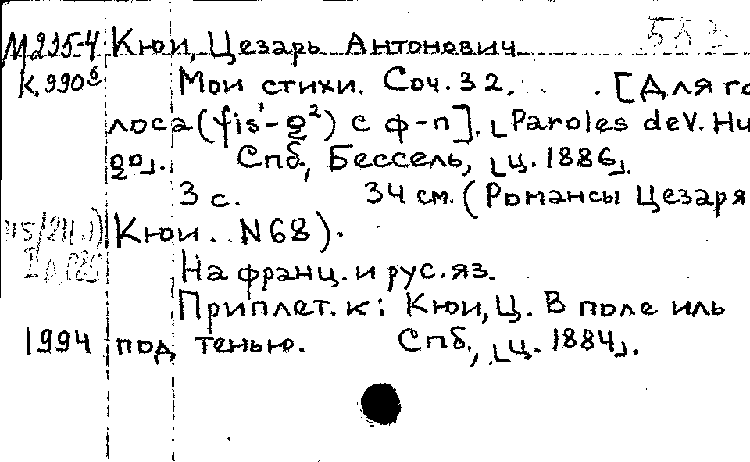 М225-4 Кюи, Цезарь Антонович 553
К.990⁸ Мои стихи. Соч. 32. . [Для го
лоса (fis¹-g²) с ф-п]. [Paroles de V. Hu
go]. Спб, Бессель, [ц. 1886].
3 с. 34 см. (Романсы Цезаря
Кюи. N 68).
На франц. и рус. яз.
Приплет. к: Кюи, Ц. В поле иль
1994 под тенью. Спб, [ц. 1884].